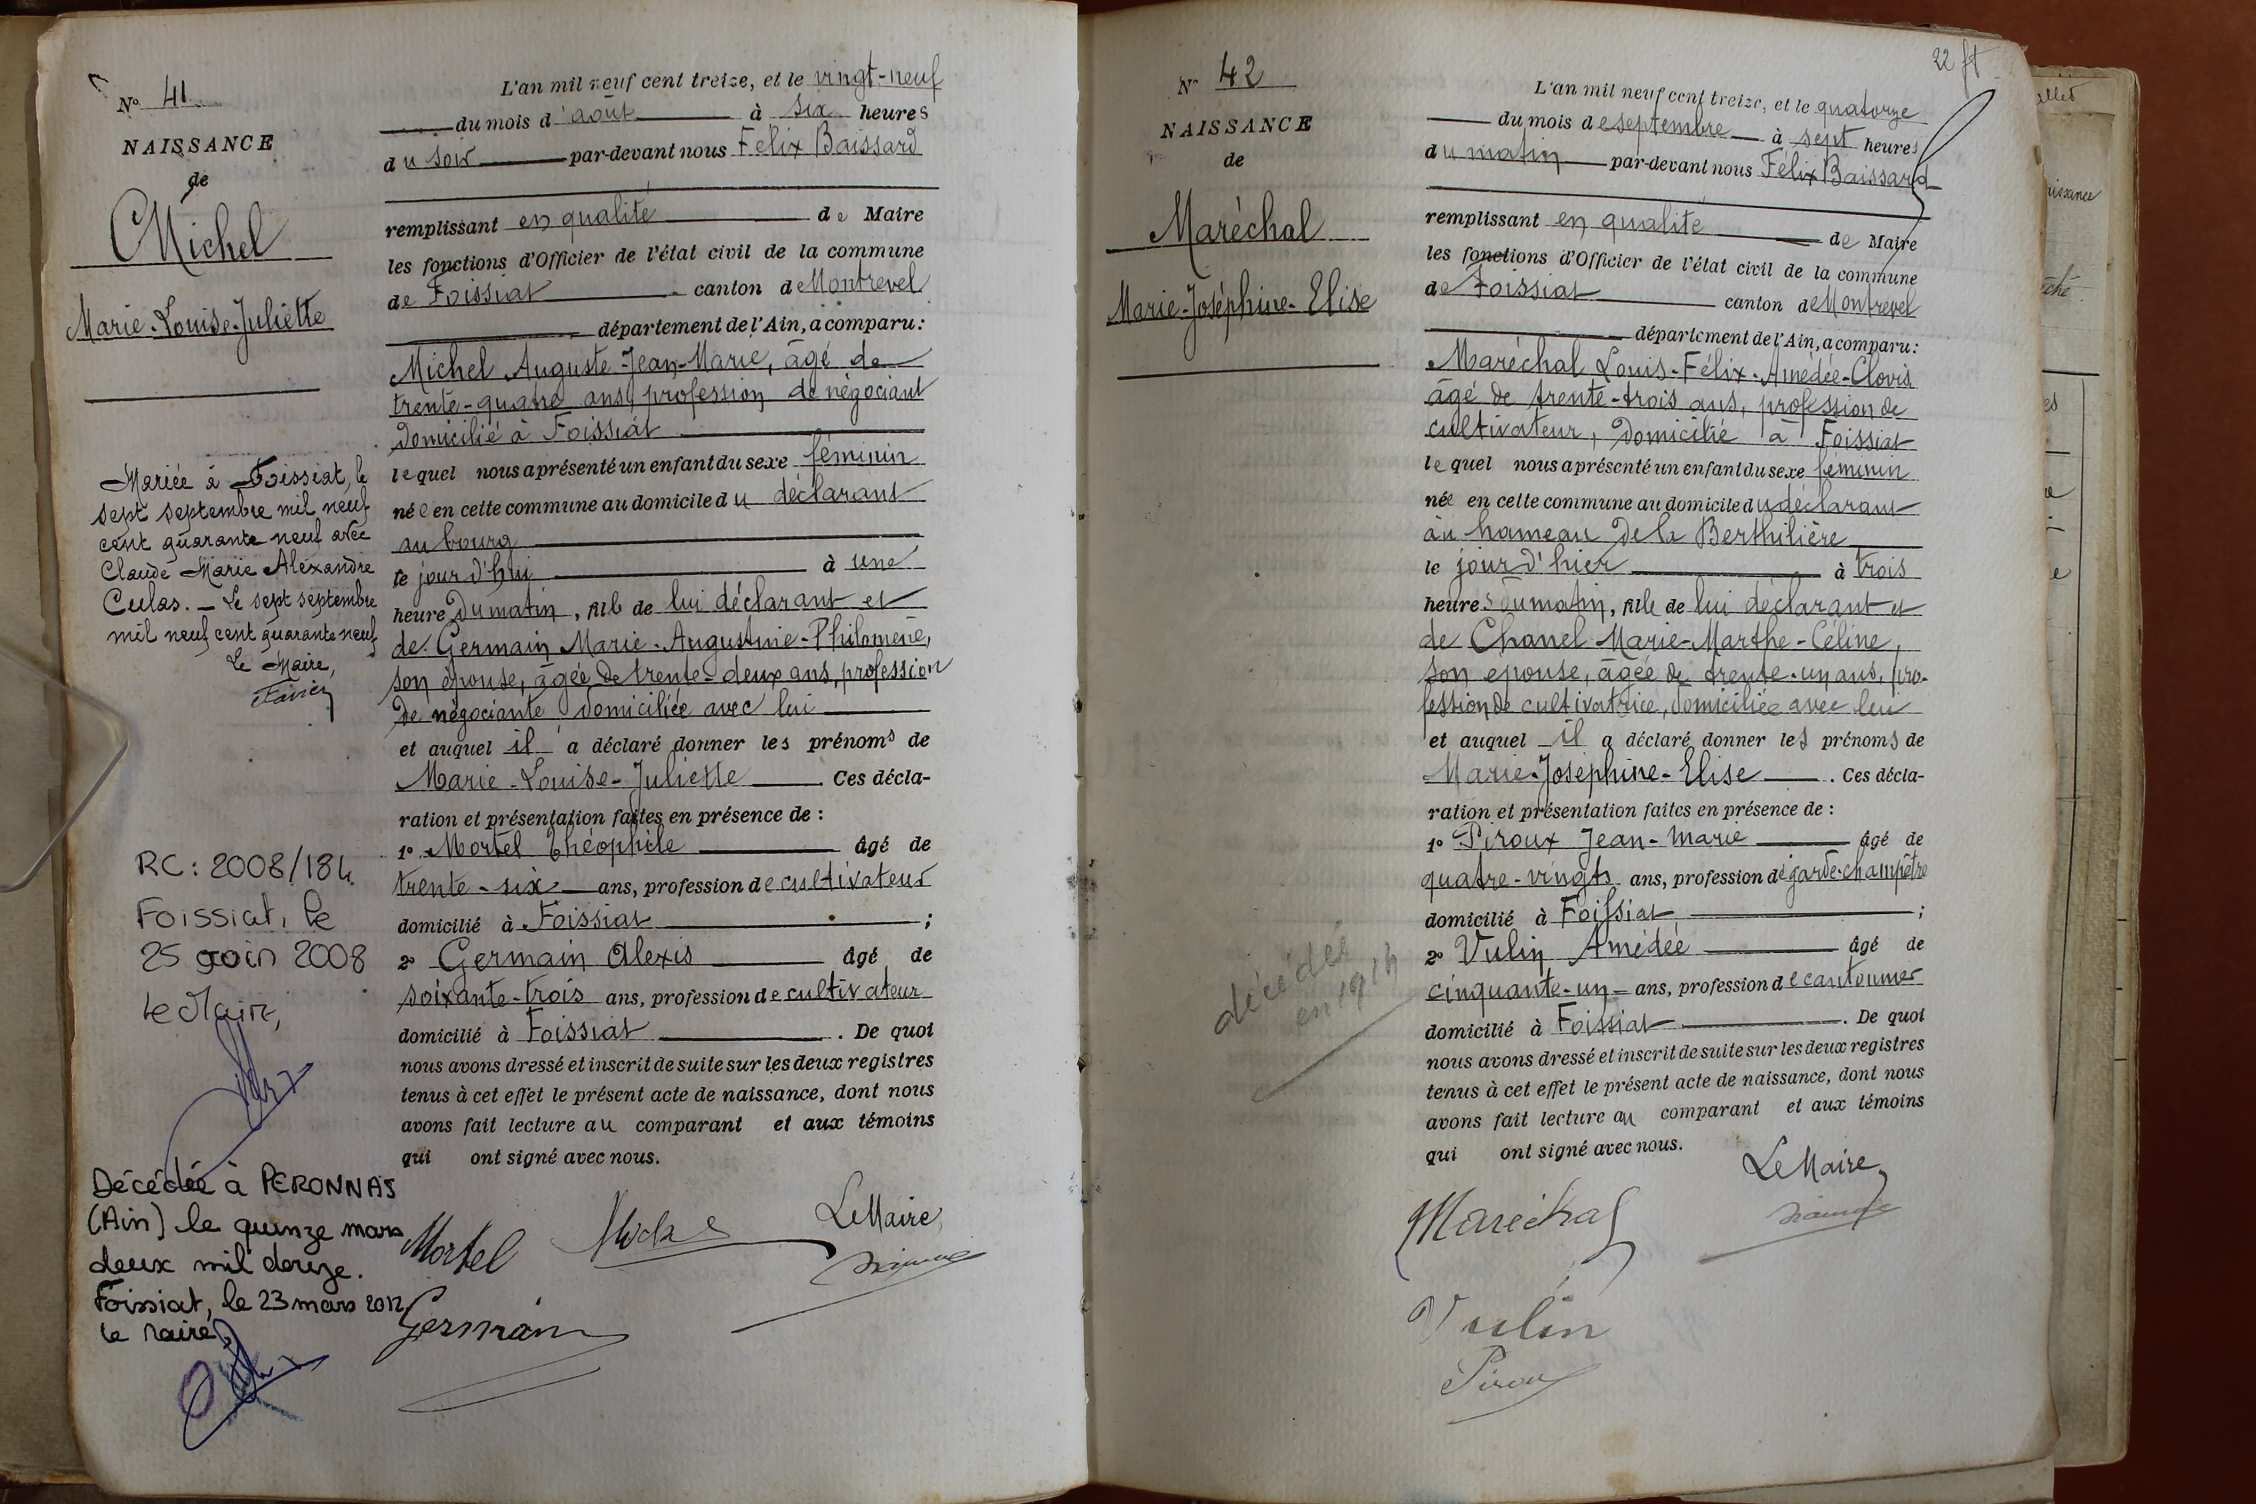 N° 41
NAISSANCE
de
Michel
Marie-Louise-Juliette
Mariée à Foissiat, le
sept septembre mil neuf
cent quarante neuf avec
Claude Marie Alexandre
Culas. — Le sept septembre
mil neuf cent quarante neuf
Le Maire,
RC : 2008/184
Foissiat, le
25 juin 2008
Le Maire,
Décédée à PERONNAS
(Ain) le quinze mars
deux mil douze.
Foissiat, le 23 mars 2012
Le Maire
L'an mil neuf cent treize, et le vingt-neuf
du mois d'août à six heures
du soir par-devant nous Félix Baissard
remplissant en qualité de Maire
les fonctions d'Officier de l'état civil de la commune
de Foissiat canton de Montrevel
département de l'Ain, a comparu :
Michel Auguste-Jean-Marie, âgé de
trente-quatre ans, profession de négociant
domicilié à Foissiat
lequel nous a présenté un enfant du sexe féminin
née en cette commune au domicile du déclarant
au bourg
le jour d'hui à une
heure du matin, fille de lui déclarant et
de Germain Marie-Augustine-Philomène,
son épouse, âgée de trente-deux ans, profession
de négociante domiciliée avec lui
et auquel il a déclaré donner les prénoms de
Marie-Louise-Juliette. Ces décla-
ration et présentation faites en présence de :
1° Mortel Théophile âgé de
trente-six ans, profession de cultivateur
domicilié à Foissiat ;
2° Germain Alexis âgé de
soixante-trois ans, profession de cultivateur
domicilié à Foissiat. De quoi
nous avons dressé et inscrit de suite sur les deux registres
tenus à cet effet le présent acte de naissance, dont nous
avons fait lecture au comparant et aux témoins
qui ont signé avec nous.
Le Maire,
Mortel
Germain
22 ft
N° 42
NAISSANCE
de
Maréchal
Marie-Joséphine-Elise
décédée
en 1914
L'an mil neuf cent treize, et le quatorze
du mois de septembre à sept heures
du matin par-devant nous Félix Baissard
remplissant en qualité de Maire
les fonctions d'Officier de l'état civil de la commune
de Foissiat canton de Montrevel
département de l'Ain, a comparu :
Maréchal Louis-Félix-Amédée-Clovis
âgé de trente-trois ans, profession de
cultivateur, domicilié à Foissiat
lequel nous a présenté un enfant du sexe féminin
née en cette commune au domicile du déclarant
au hameau de la Berthilière
le jour d'hier à trois
heures du matin, fille de lui déclarant et
de Chanel Marie-Marthe-Céline,
son épouse, âgée de trente-un ans, pro-
fession de cultivatrice, domiciliée avec lui
et auquel il a déclaré donner les prénoms de
Marie-Josephine-Elise. Ces décla-
ration et présentation faites en présence de :
1° Piroux Jean-Marie âgé de
quatre-vingts ans, profession de garde-champêtre
domicilié à Foissiat ;
2° Vulin Amédée âgé de
cinquante-un ans, profession de cantonnier
domicilié à Foissiat. De quoi
nous avons dressé et inscrit de suite sur les deux registres
tenus à cet effet le présent acte de naissance, dont nous
avons fait lecture au comparant et aux témoins
qui ont signé avec nous.
Le Maire,
Maréchal
Vulin
Piroux